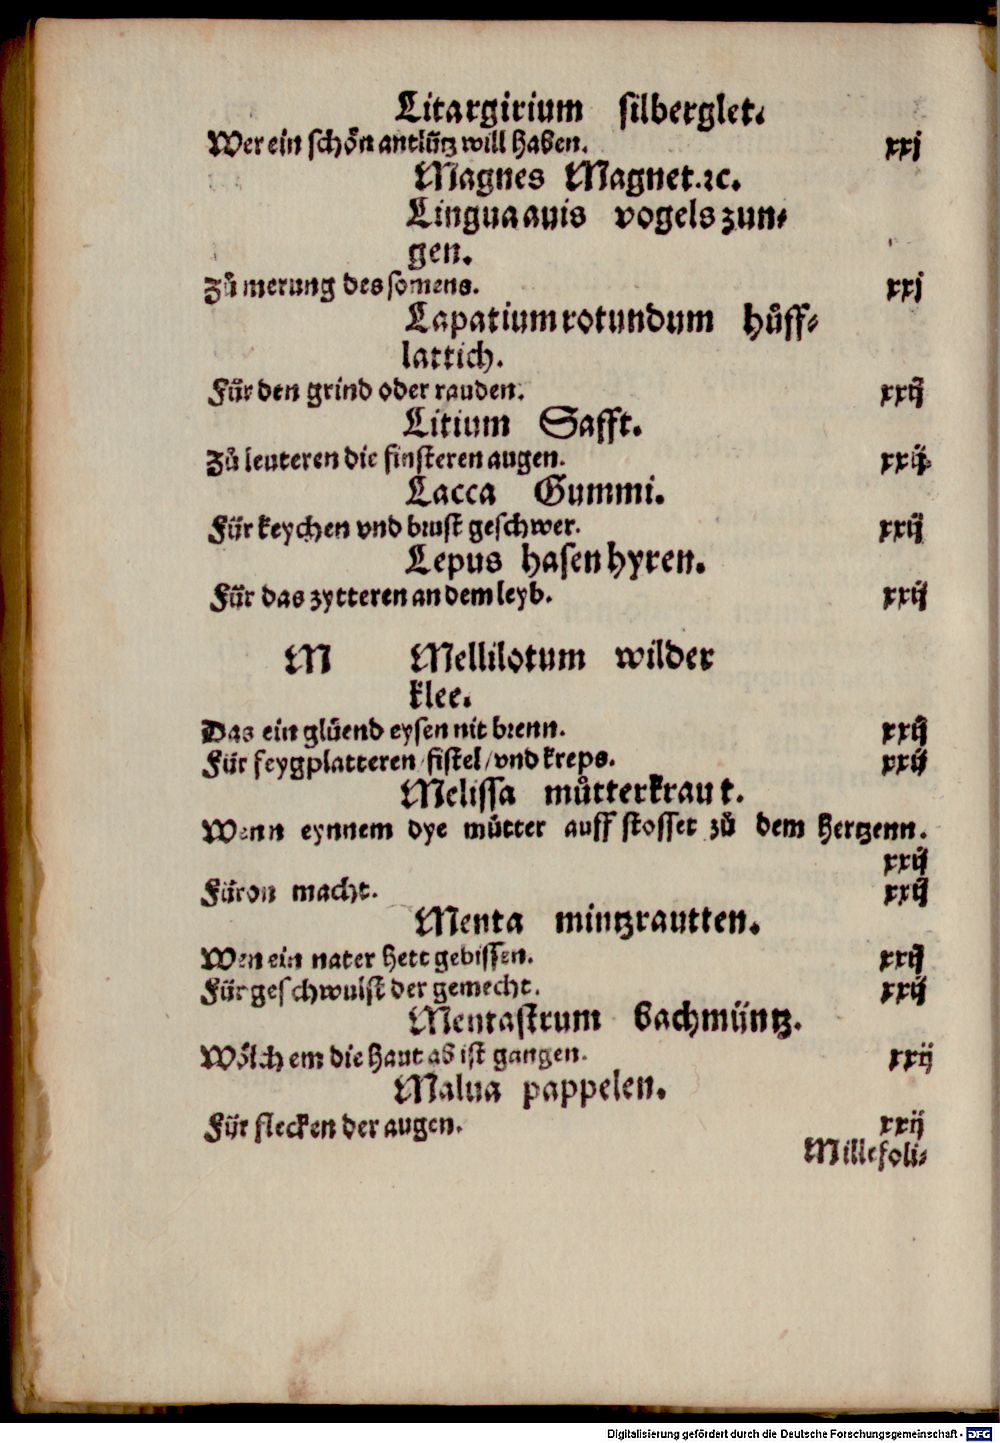 Litargirium silberglet⸗
Wer ein schoͤn antluͤtz will haben. xxj
Magnes Magnet.ꝛc.
Lingua auis vogels zun⸗
gen.
Zuͦ merung des somens. xxj
Lapatium rotundum huͦff⸗
lattich.
Für den grind oder rauden. xxij
Litium Safft.
Zuͦ leuteren die finsteren augen. xxij
Lacca Gummi.
Für keychen vnd brust geschwer. xxij
Lepus hasen hyren.
Für das zytteren an dem leyb. xxij
M Mellilotum wilder
klee.
Das ein gluͤend eysen nit brenn. xxij
Für feygplatteren/fistel/vnd kreps. xxij
Melissa muͦtterkraut.
Wenn eynnem dye muͦtter auff stosset zuͦ dem hertzenn.
xxij
Für on macht. xxij
Menta mintzrautten.
Wen ein nater hett gebissen. xxij
Für geschwulst der gemecht. xxij
Mentastrum bachmüntz.
Woͤlchem die haut ab ist gangen. xxij
Malua pappelen.
Für flecken der augen. xxij
Millefoli⸗
Digitalisierung gefördert durch die Deutsche Forschungsgemeinschaft - DFG